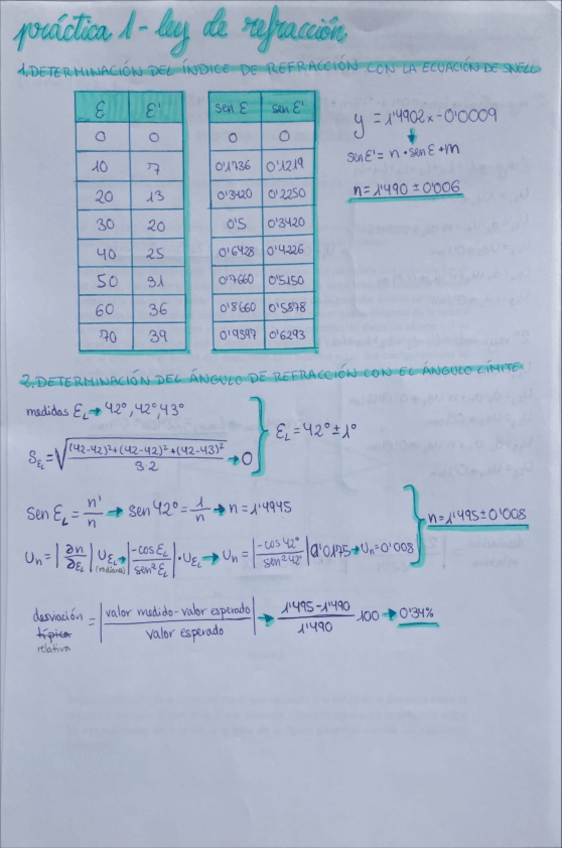 práctica 1 - ley de refracción
1. DETERMINACIÓN DEL ÍNDICE DE REFRACCIÓN CON LA ECUACIÓN DE SNELL
ε ε' sen ε sen ε'
0 0 0 0
10 7 0'1736 0'1219
20 13 0'3420 0'2250
30 20 0'5 0'3420
40 25 0'6428 0'4226
50 31 0'7660 0'5150
60 36 0'8660 0'5878
70 39 0'9397 0'6293
y = 1'4902x - 0'0009
sen ε' = n · sen ε + m
n = 1'490 ± 0'006
2. DETERMINACIÓN DEL ÁNGULO DE REFRACCIÓN CON EL ÁNGULO LÍMITE
medidas ε_L → 42°, 42°, 43°
S_ε_L = √((42-42)²+(42-42)²+(42-43)² / 3·2) → 0
ε_L = 42° ± 1°
sen ε_L = n'/n → sen 42° = 1/n → n = 1'4945
U_n = |∂n/∂ε_L| U_ε_L (radianes) → |-cos ε_L / sen² ε_L| · U_ε_L → U_n = |-cos 42° / sen² 42°| 0'0175 → U_n = 0'008
n = 1'495 ± 0'008
desviación típica relativa = |valor medido - valor esperado / valor esperado| → 1'495 - 1'490 / 1'490 · 100 → 0'34%